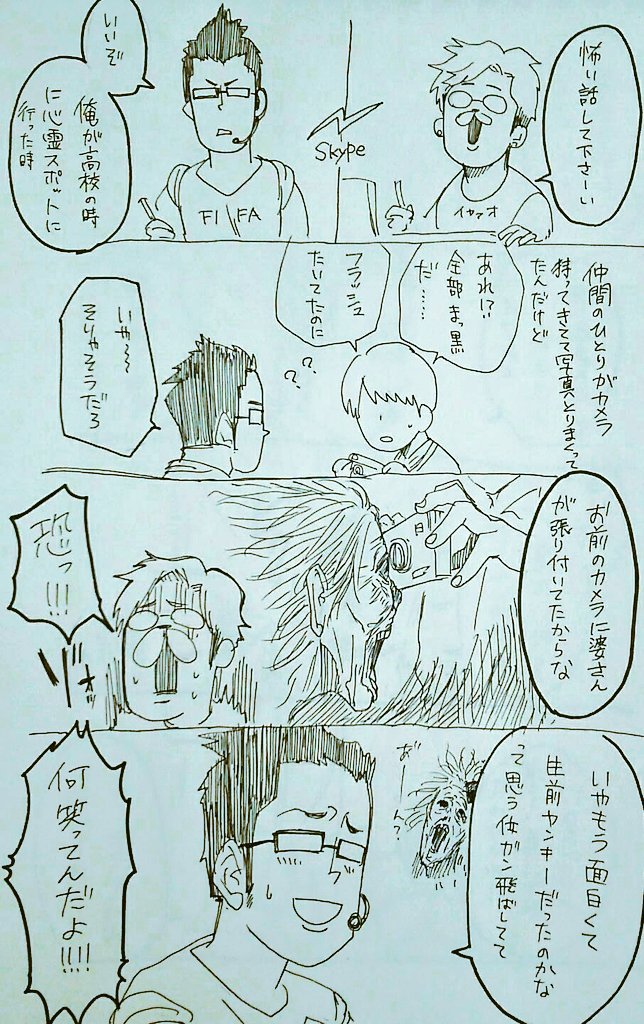 怖い話して下さーい
Skype
イヤマオ
いいぞ
俺が高校の時
に心霊スポットに
行った時
FIFA
仲間のひとりがカメラ
持ってきてて写真とりまくって
たんだけど
あれ!?い
全部まっ黒
だ……
フラッシュ
たいてたのに
??
いや〜〜
そりゃそうだろ
お前のカメラに婆さん
が張り付いてたからな
恐っ!!!
いやもう面白くて
生前ヤンキーだったのかな
って思う位ガン飛ばしてて
あ゛ーん?
何笑ってんだよ!!!!